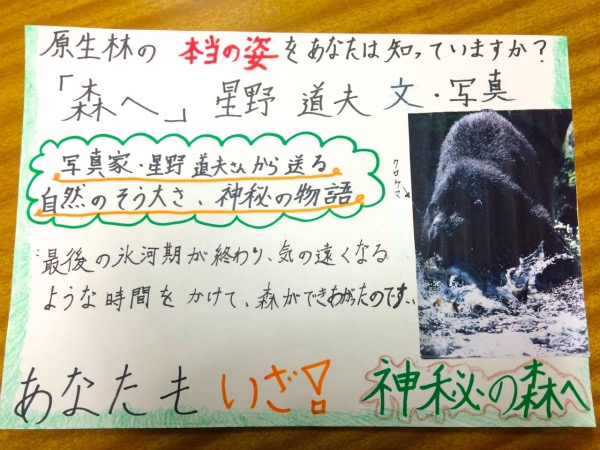 原生林の 本当の姿 をあなたは知っていますか?
「森へ」 星野 道夫 文・写真
写真家・星野道夫さんから送る
自然のそう大さ、神秘の物語
クロクマ
最後の氷河期が終わり、気の遠くなる
ような時間をかけて、森ができあがったのです。
あなたも いざ! 神秘の森へ